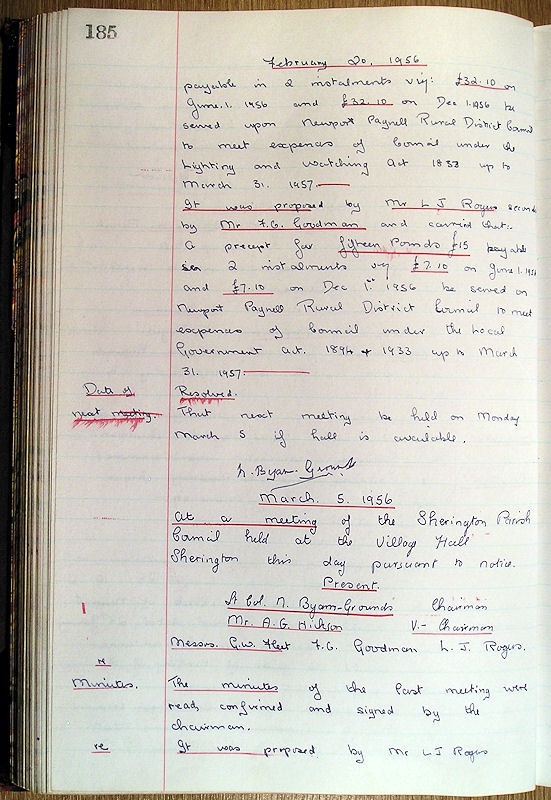 185
February 20, 1956
payable in 2 instalments viz: £32.10 on
June.1. 1956 and £32.10 on Dec 1.1956 be
served upon Newport Pagnell Rural District Council
to meet expenses of Council under the
Lighting and Watching Act 1833 up to
March 31. 1957.
It was proposed by Mr L J Rogers second
by Mr F.G. Goodman and carried that:-
A precept for fifteen Pounds £15 payable
in 2 instalments viz £7.10 on June 1. 1956
and £7.10 on Dec 1st 1956 be served on
Newport Pagnell Rural District Council to meet
expenses of Council under the Local
Government act. 1894 + 1933 up to March
31. 1957.
Date of Resolved.
next meeting. That next meeting be held on Monday
March 5 if hall is available.
N. Byam-Grounds
March. 5. 1956
At a meeting of the Sherington Parish
Council held at the Village Hall
Sherington this day pursuant to notice.
Present.
Lt Col. N. Byam-Grounds Chairman
Mr. A.G. Hickson V.- Chairman
Messrs. G.W. Fleet F.G. Goodman L. J. Rogers.
Minutes. The minutes of the last meeting were
read, confirmed and signed by the
chairman.
re It was proposed by Mr L J Rogers